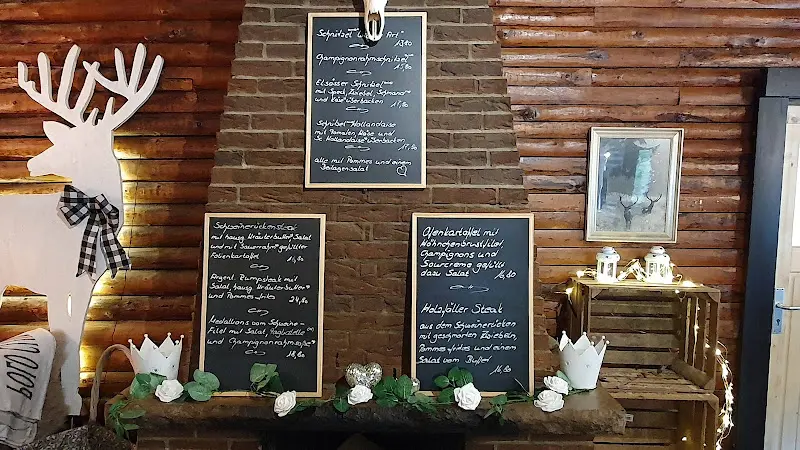 Schnitzel Art"
13,80
Champignonrahmschnitzel
15,80
Elsässer Schnitzel
mit Speck, Zwiebel, Schmand
und Käse überbacken
17,80
Schnitzel Hollandaise
mit Tomaten, Käse und
Sc. Hollandaise überbacken
17,80
alle mit Pommes und einem
Beilagensalat
Schweinerückensteak
mit hausg. Kräuterbutter, Salat
und mit Sauerrahm gefüllter
Folienkartoffel
Argent. Rumpsteak mit
Salat, hausg. Kräuterbutter
und Pommes-frites 24,80
Medaillons vom Schweine-
Filet mit Salat,
und Champignonrahmsoße
18,80
Ofenkartoffel mit
Hähnchenbrustfilet,
Champignons und
Sourcreme gefüllt
dazu Salat 16,80
Holzfäller Steak
aus dem Schweinerücken
mit geschmorten Zwiebeln,
Pommes-frites und einem
Salat vom Buffet
16,80